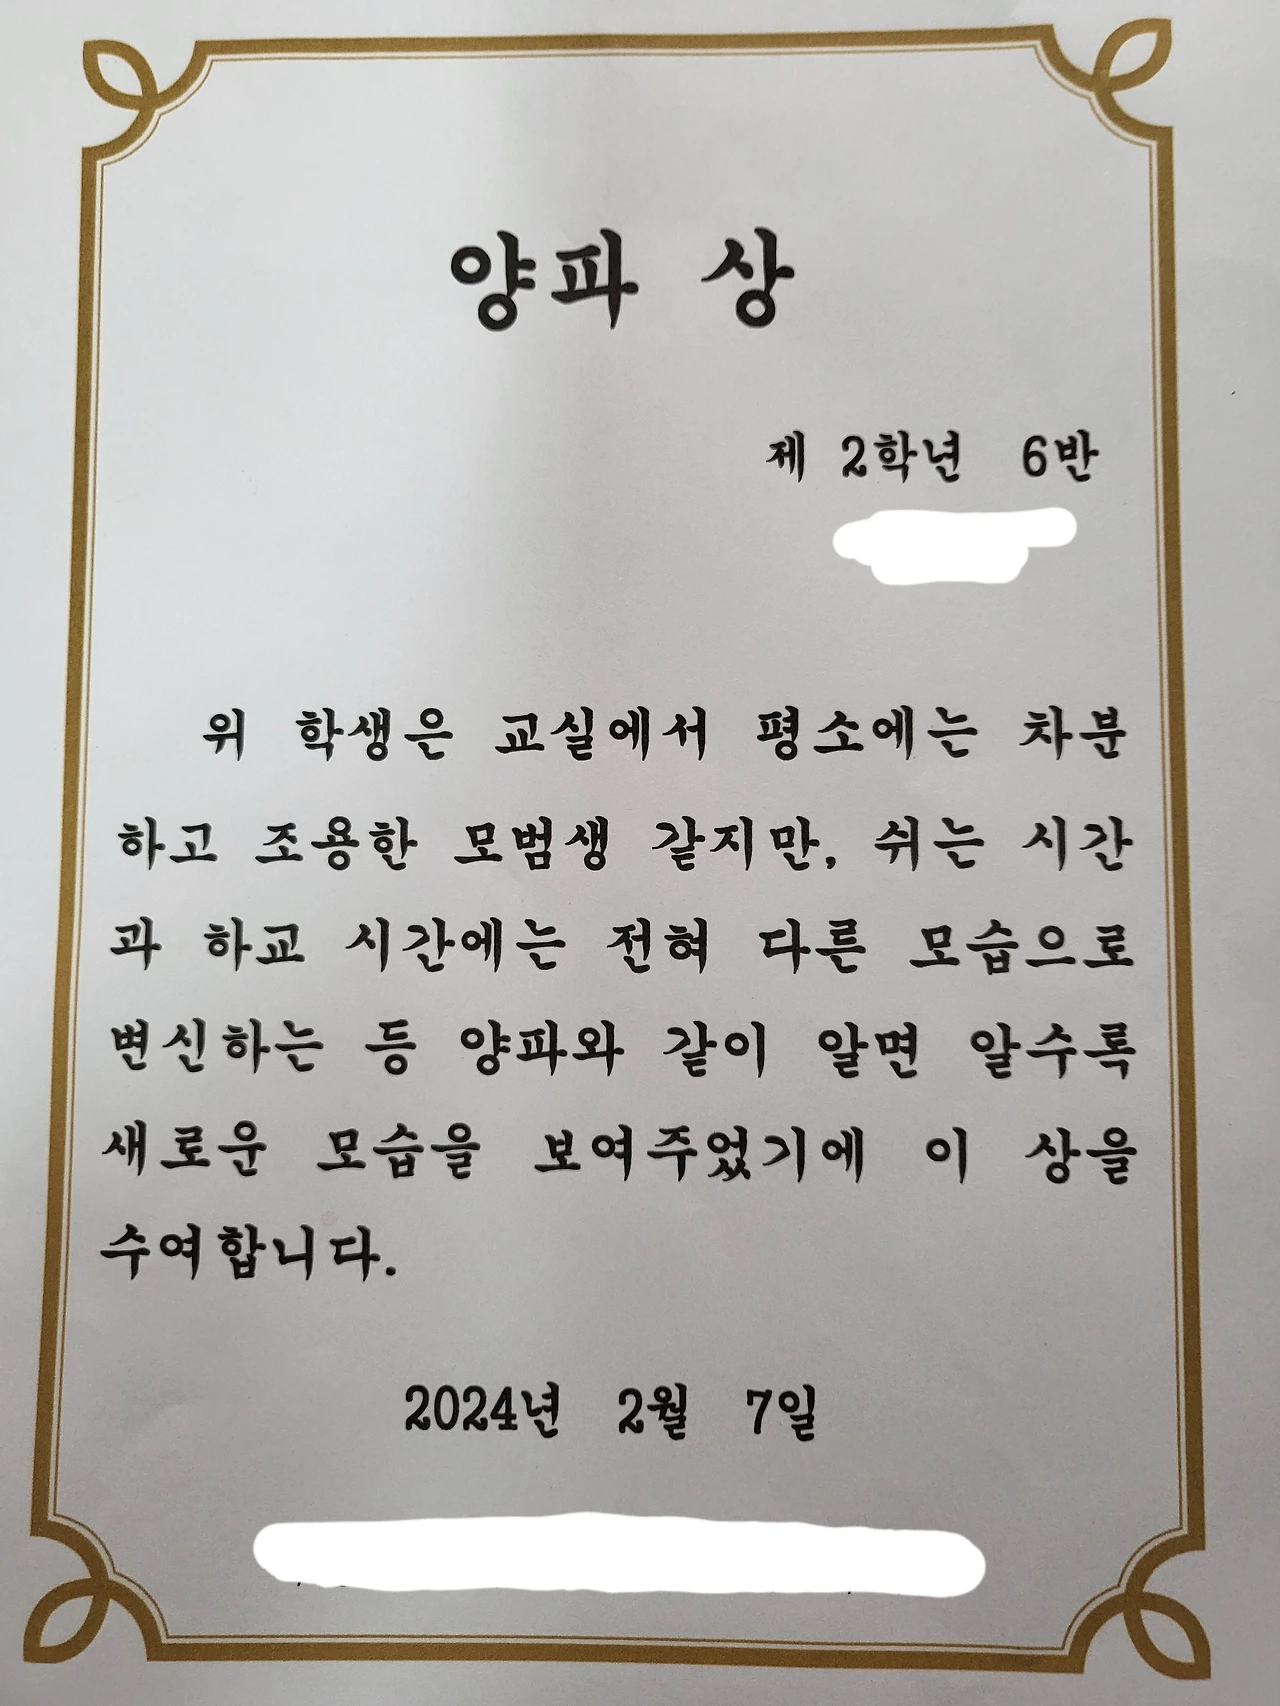 양파 상
제 2학년 6반
위 학생은 교실에서 평소에는 차분
하고 조용한 모범생 같지만, 쉬는 시간
과 하교 시간에는 전혀 다른 모습으로
변신하는 등 양파와 같이 알면 알수록
새로운 모습을 보여주었기에 이 상을
수여합니다.
2024년 2월 7일